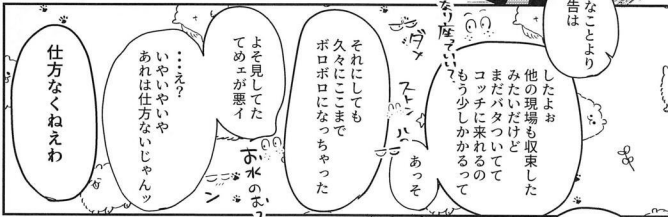 なことより
告は
したよぉ
他の現場も収束した
みたいだけど
まだバタついてて
コッチに来れるの
もう少しかかるって
なり座っていい?
ダメ
ストン
あっそ
それにしても
久々にここまで
ボロボロになっちゃった
よそ見してた
てめェが悪イ
お水のむ?
・・・え?
いやいやいや
あれは仕方ないじゃんッ
仕方なくねえわ